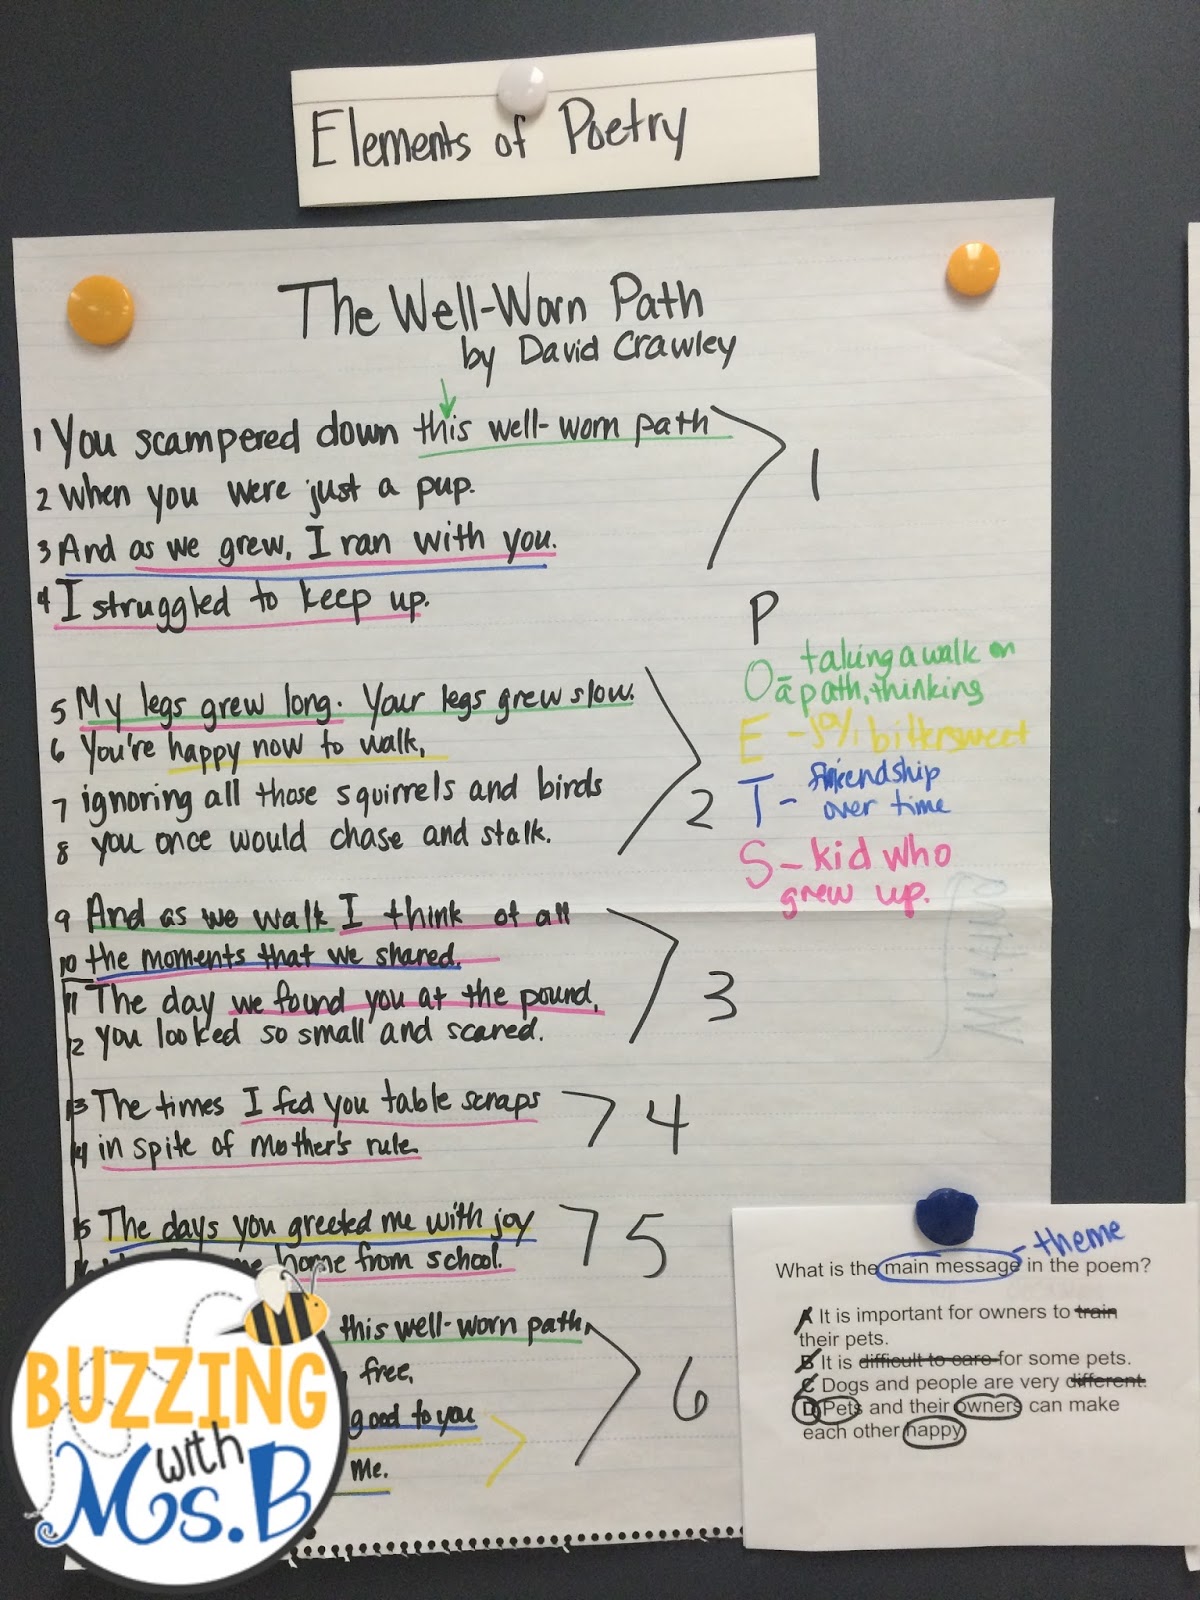 Elements of Poetry
The Well-Worn Path
by David Crawley
1 You scampered down this well-worn path
2 when you were just a pup.
3 And as we grew, I ran with you.
4 I struggled to keep up.
1
5 My legs grew long. Your legs grew slow.
6 You're happy now to walk,
7 ignoring all those squirrels and birds
8 you once would chase and stalk.
2
9 And as we walk I think of all
10 the moments that we shared.
11 The day we found you at the pound,
12 you looked so small and scared.
3
13 The times I fed you table scraps
14 in spite of Mother's rule.
4
15 The days you greeted me with joy
home from school.
5
this well-worn path,
free,
good to you
me.
6
P
O - taking a walk on
a path, thinking
E - joy, bittersweet
T - friendship
over time
S - kid who
grew up.
theme
What is the main message in the poem?
A It is important for owners to train
their pets.
B It is difficult to care for some pets.
C Dogs and people are very different.
D Pets and their owners can make
each other happy
BUZZING
with
Ms. B